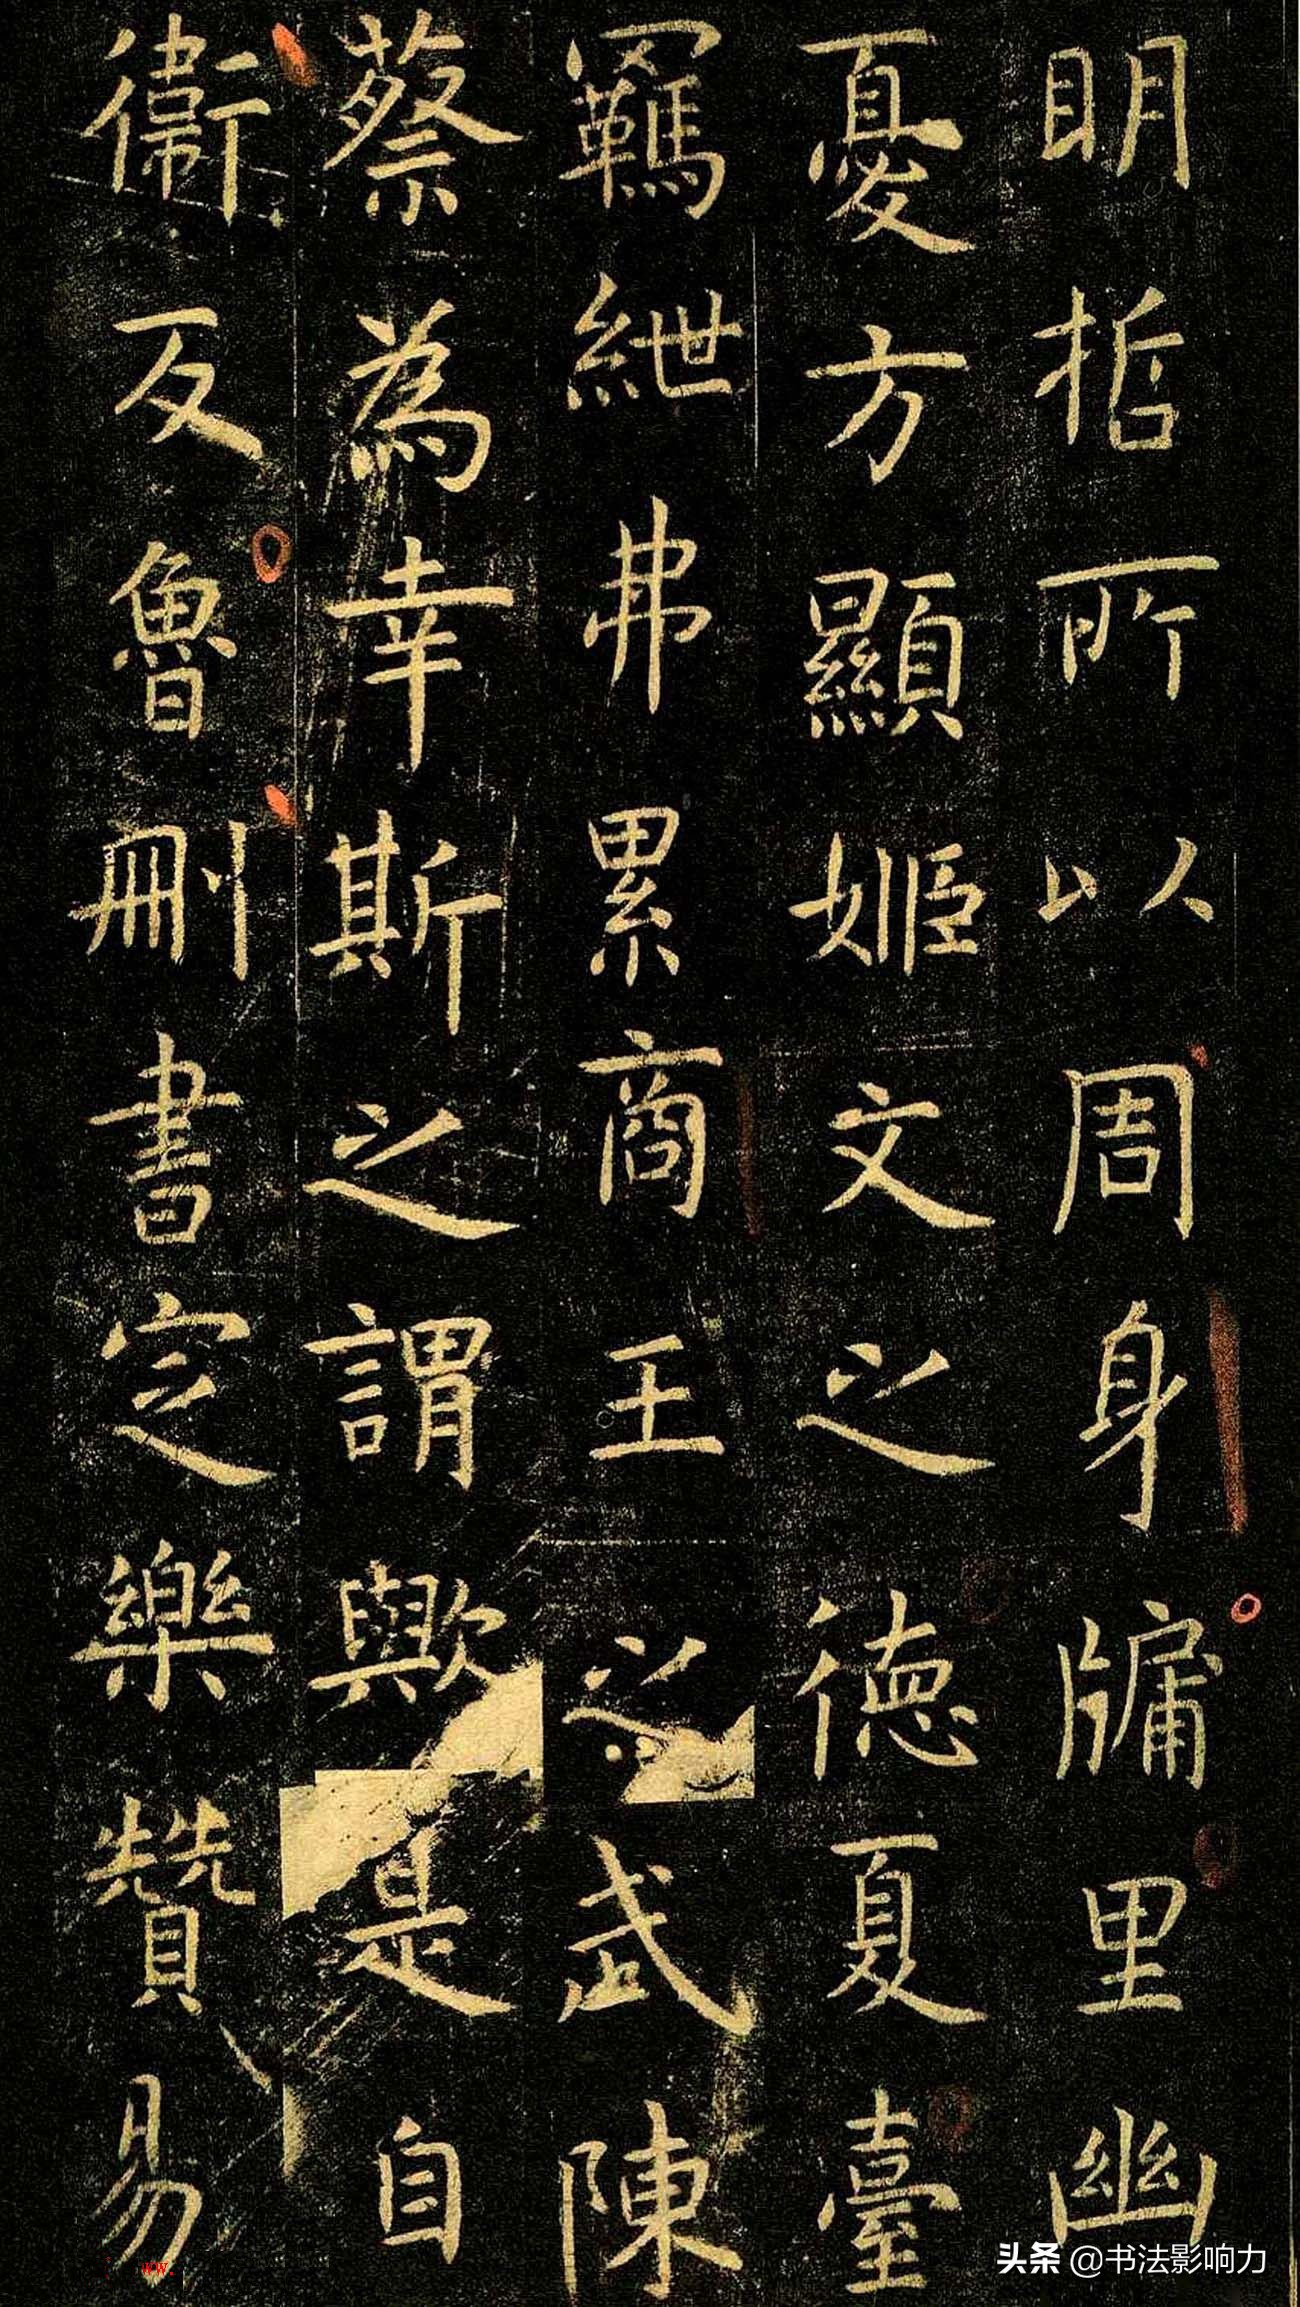 明哲所以周身牖里幽
憂方顯姬文之德夏臺
羈紲弗累商王之武陳
蔡為幸斯之謂歟是自
衞反魯刪書定樂贊易
头条 @书法影响力
ww.